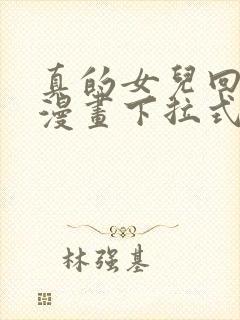 真的女兒回
漫畫下拉式
林强基